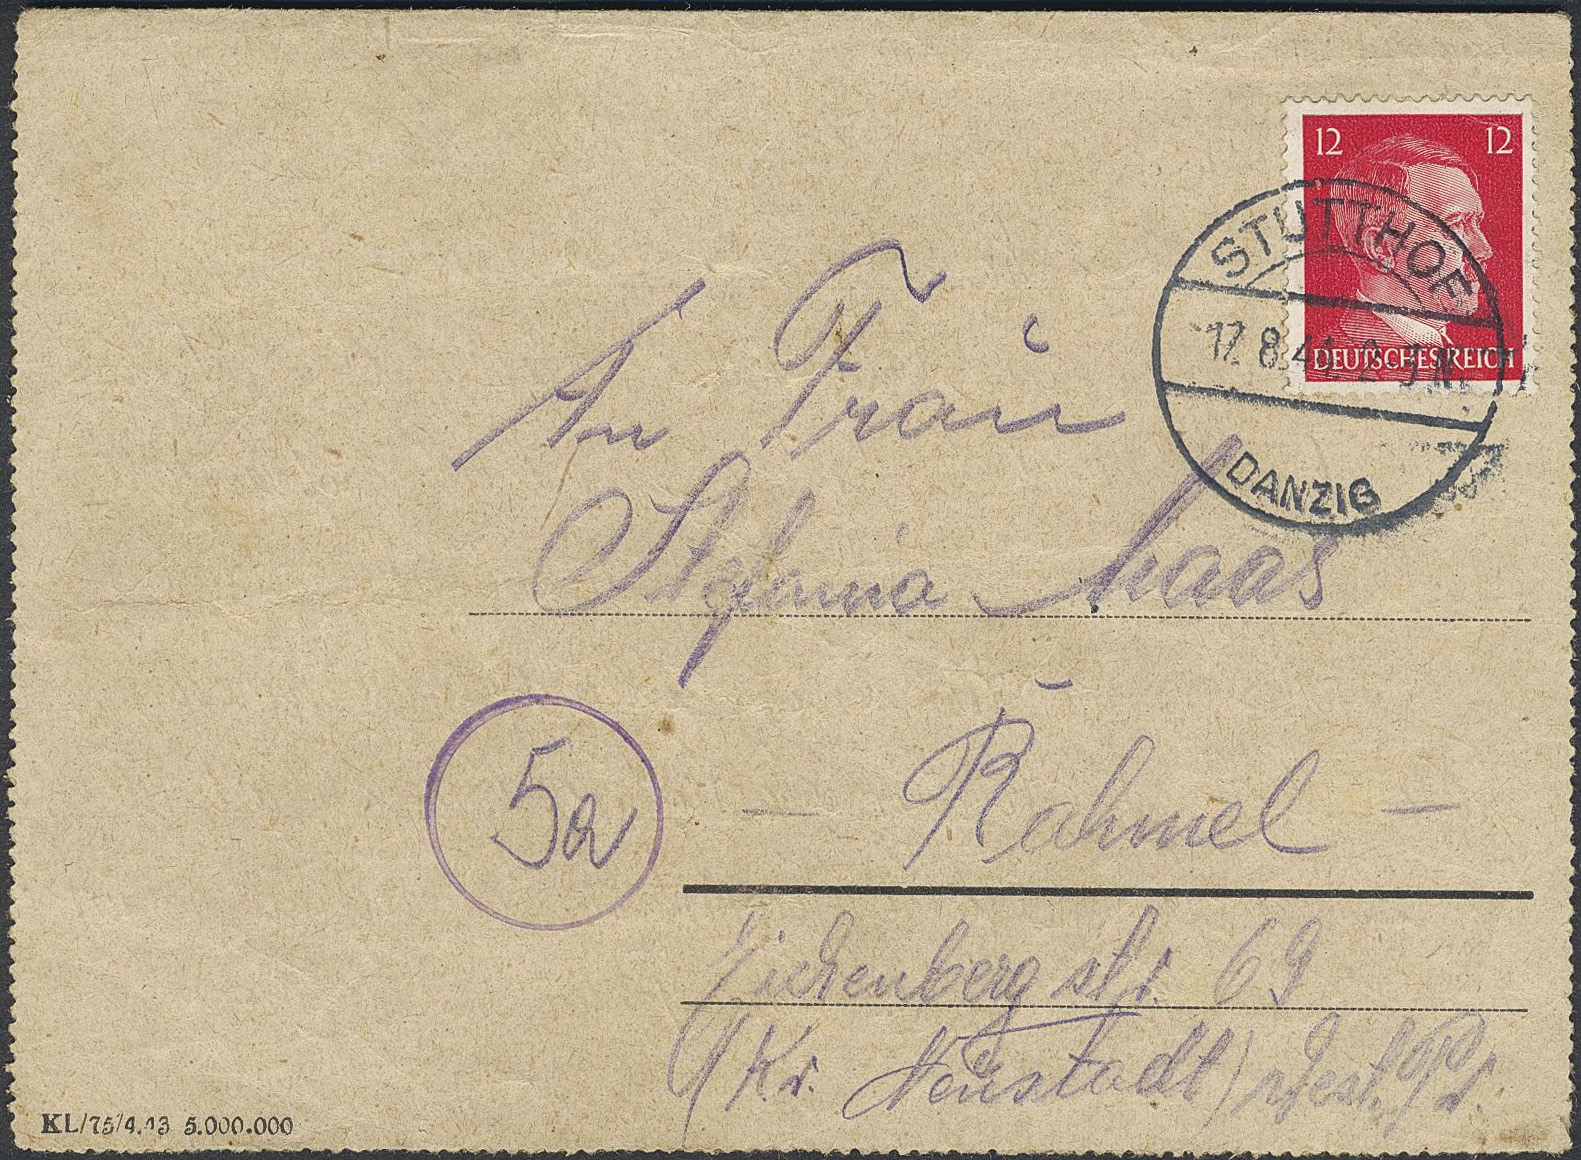 12 12
DEUTSCHES REICH
STUTTHOF
17.8.44.
DANZIG
An Frau
Stefania Maas
5a
— Rahmel —
Eichenbergstr. 69
(Kr. Neustadt) West. Pr.
KL/75/4.43 5.000.000